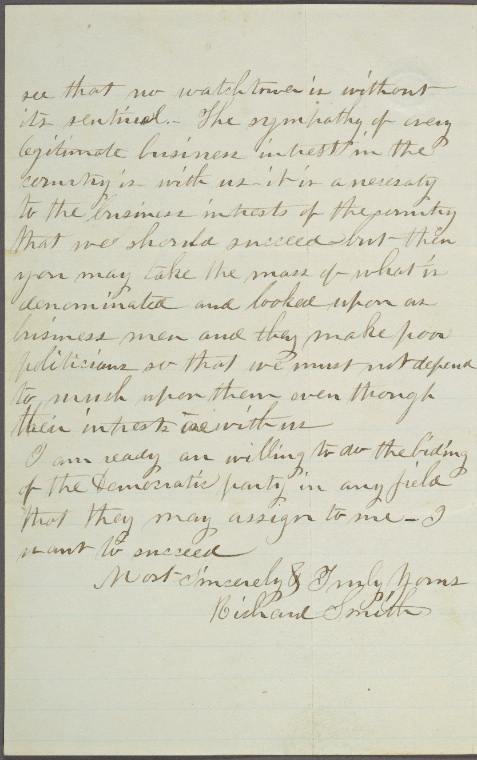 see that no watchtower is without
its sentinel. - The sympathy of every
legitimate business intrest in the
country is with us - it is a necesaty
to the business intrests of the country
that we should succeed - but then
you may take the mass of what is
denominated and looked upon as
business men and they make poor
politicians so that we must not depend
to much upon them even though
their intrests is with us
I am ready an willing to do the biding
of the Democratic party in any field
that they may assign to me - I
want to succeed
Most sincerely & Truly Yours
Richard Smith